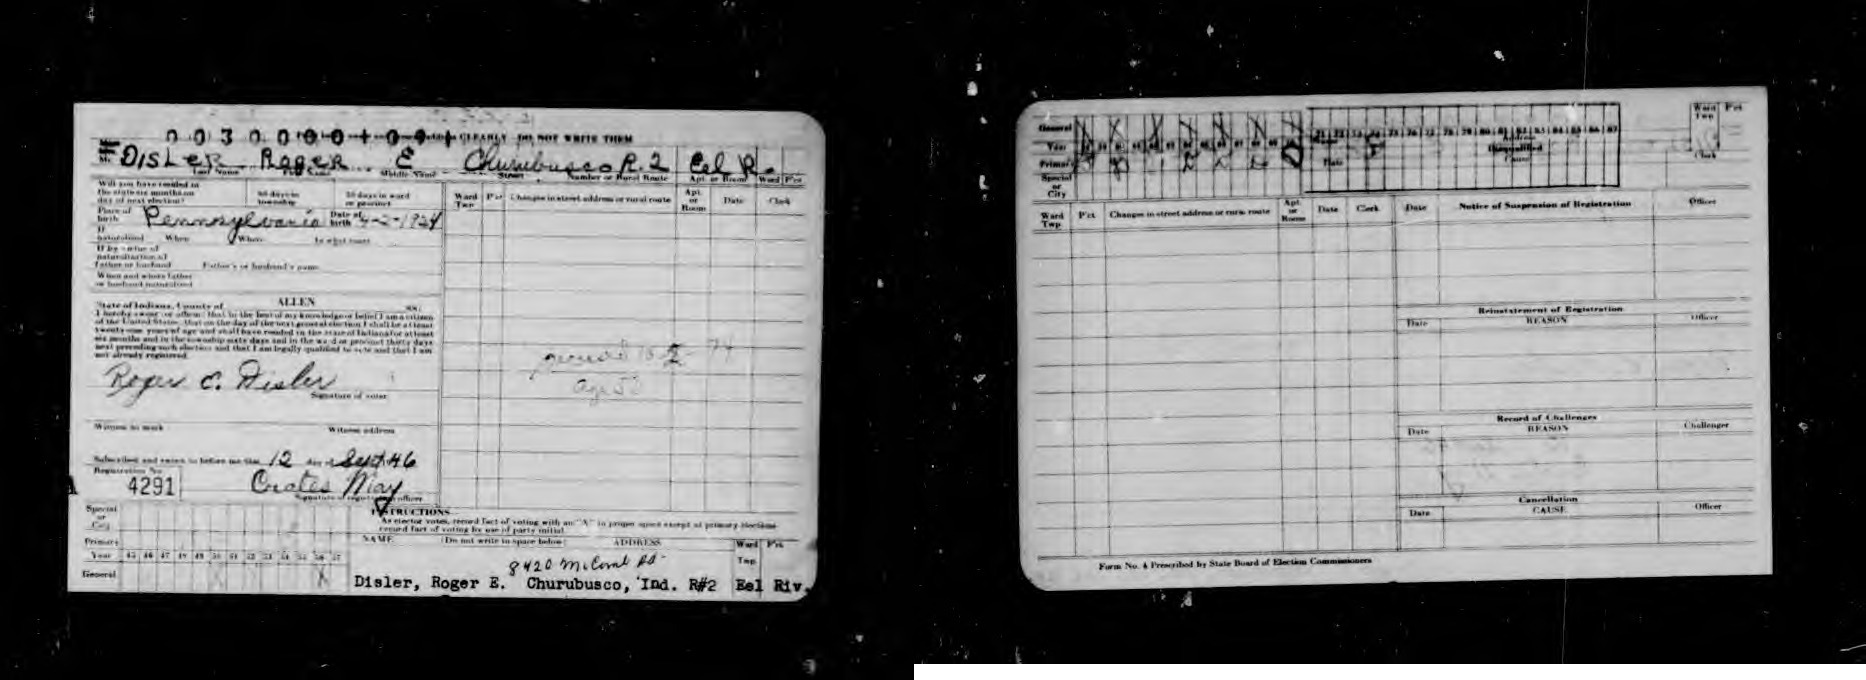 CLEARLY DO NOT WRITE THEM
Mr. DISLER Roger E Churubusco R.2 Eel R.
Last Name Middle Name Street Number or Rural Route Apt. or Room Ward Pct
Will you have resided in
the state six months on
day of next election?
60 days in
township
30 days in ward
or precinct
Ward
Twp
Pct
Changes in street address or rural route
Apt.
or
Room
Date
Clerk
Place of
birth Pennsylvania Date of
birth 4-2-1924
If
naturalized When Where In what court
If by virtue of
naturalization of
father or husband Father's or husband's name
When and where father
or husband naturalized
State of Indiana, County of ALLEN SS:
I hereby swear (or affirm) that to the best of my knowledge or belief I am a citizen
of the United States, that on the day of the next general election I shall be at least
twenty-one years of age and shall have resided in the state of Indiana for at least
six months and in the township sixty days and in the ward or precinct thirty days
next preceding such election and that I am legally qualified to vote and that I am
not already registered.
Roger E. Disler
Signature of voter
74
age
Witness to mark Witness address
Subscribed and sworn to before me this 12 day of Sept 46
Registration No
4291
May
Signature of registration officer
INSTRUCTIONS
As elector votes, record fact of voting with an "X" in proper space except at primary elections
record fact of voting by use of party initial.
Special
or
City
Primary
Year 45 46 47 48 49 50 51 52 53 54 55 56 57
General
NAME (Do not write in space below) ADDRESS Ward Pct
Twp
8420
Disler, Roger E. Churubusco, Ind. R#2 Eel Riv.
General
Year
Primary
Special
or
City
71 72 73 74 75 76 77 78 79 80 81 82 83 84 85 86 87
Date
Cause
Ward Pct
Twp
Clerk
Ward
Twp
Pct
Changes in street address or rural route
Apt.
or
Room
Date
Clerk
Date
Notice of Suspension of Registration
Officer
Reinstatement of Registration
Date REASON Officer
Record of Challenges
Date REASON Challenger
Cancellation
Date CAUSE Officer
Form No. 4 Prescribed by State Board of Election Commissioners